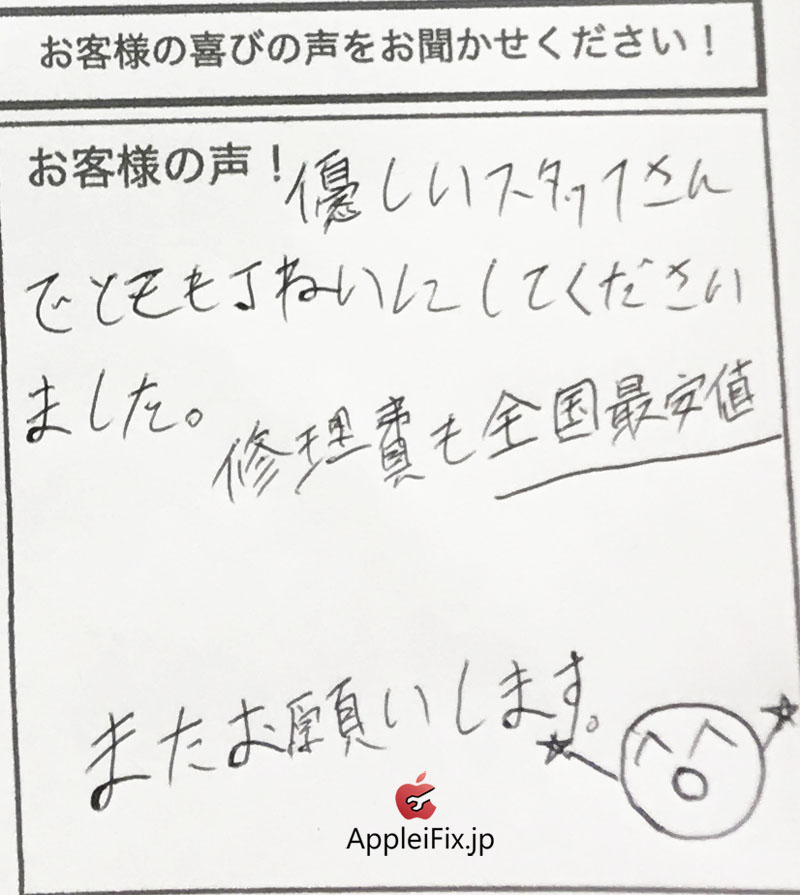 お客様の喜びの声をお聞かせください！
お客様の声！
優しいスタッフさん
でとても丁ねいにしてください
ました。
修理費も全国最安値
またお願いします。
AppleiFix.jp